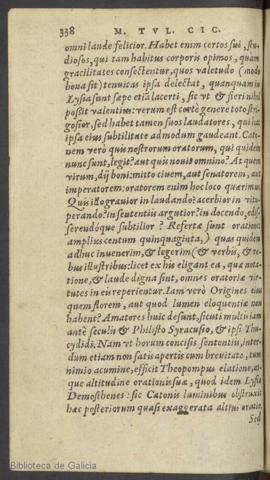 338 M. TVL. CIC.
omni laude felicior. Habet enim certos sui, stu-
diosos, qui tam habitus corporis opimos, quam
gracilitates consectentur, quos valetudo (modo
bona sit) tenuitas ipsa delectat, quanquam in
Lysia sunt sæpe etiā lacerti, sic vt & fieri nihil
possit valentius: verum est certè genere toto stri-
gosior, sed habet tamen suos laudatores, qui hac
ipsa eius subtilitate admodum gaudeant. Cato-
nem verò quis nostrorum oratorum, qui quidem
nunc sunt, legit? aut quis nouit omnino? At quem
virum, dij boni: mitto ciuem, aut senatorem, aut
imperatorem: oratorem enim hoc loco quærimus.
Quis illo grauior in laudando? acerbior in vitu-
perando? in sententiis argutior? in docendo, edis-
serendóque subtilior? Refertæ sunt orationes
amplius centum quinquaginta, quas quidem
adhuc inuenerim, & legerim & verbis, & re-
bus illustribus: licet ex his eligant ea, quæ nota-
tione, & laude digna sint, omnes oratoriæ vir-
tutes in eis reperientur. Iam verò Origines eius
quem florem, aut quod lumen eloquentiæ non
habent? Amatores huic desunt, sicuti multis iam
antè seculis & Philisto Syracusio, & ipsi Thu-
cydidi. Nam vt horum concisis sententiis, inter-
dum etiam non satis apertis cum breuitate, tum
nimio acumine, efficit Theopompus elatione, at-
que altitudine orationis suæ, quod idem Lysiæ
Demosthenes: sic Catonis luminibus obstruxit
hæc posteriorum quasi exaggerata altius oratio.
Sed
Biblioteca de Galicia